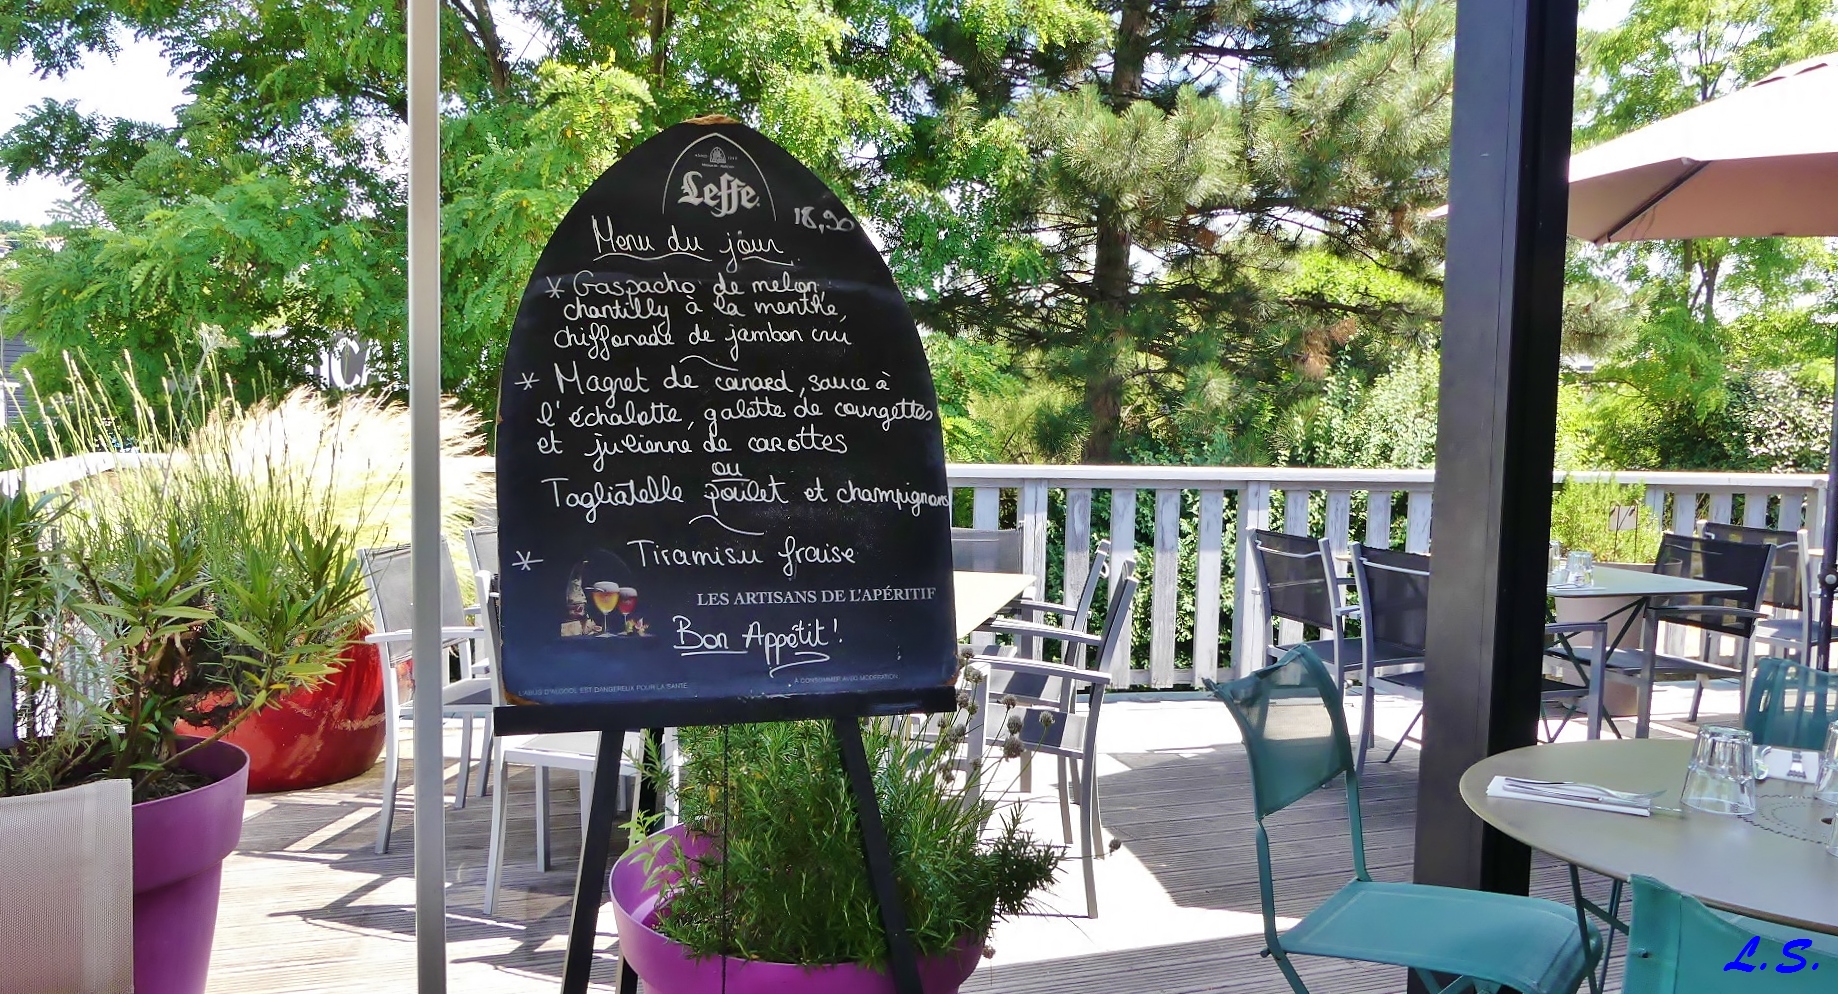 Leffe
18,90
Menu du jour
* Gaspacho de melon,
chantilly à la menthe,
chiffonade de jambon cru
* Magret de canard, sauce à
l'échalotte, galette de courgettes
et julienne de carottes
ou
Tagliatelle poulet et champignons
* Tiramisu fraise
LES ARTISANS DE L'APÉRITIF
Bon Appétit!
L'ABUS D'ALCOOL EST DANGEREUX POUR LA SANTÉ
À CONSOMMER AVEC MODÉRATION
L.S.